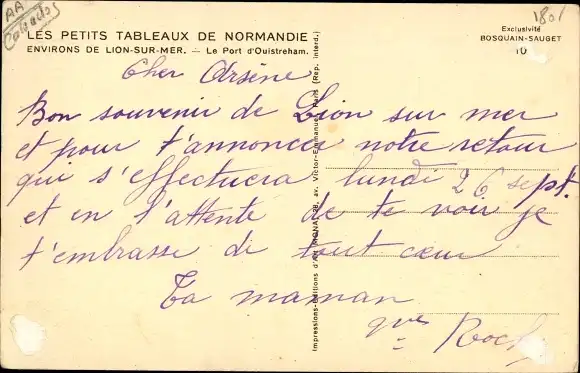 AA
Calvados
1801
LES PETITS TABLEAUX DE NORMANDIE
ENVIRONS DE LION-SUR-MER. — Le Port d'Ouistreham.
Exclusivité
BOSQUAIN-SAUGET
10
Cher Arsène
Bon souvenir de Lion sur mer
et pour t'annoncer notre retour
qui s'effectuera lundi 26 sept.
et en l'attente de te voir je
t'embrasse de tout cœur
Ta maman
Roch
Impressions-Editions d'Art 28, av. Victor-Emmanuel, Paris (Rep. Interd.)